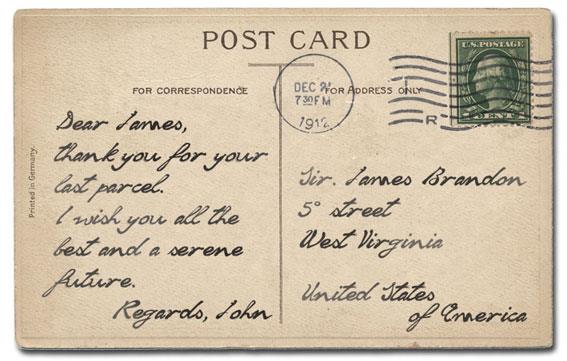 POST CARD
FOR CORRESPONDENCE
FOR ADDRESS ONLY
U.S. POSTAGE
DEC 21
7 30 PM
1912
R
Printed in Germany.
Dear James,
thank you for your
last parcel.
I wish you all the
best and a serene
future.
Regards, John
Sir. James Brandon
5° street
West Virginia
United States
of America